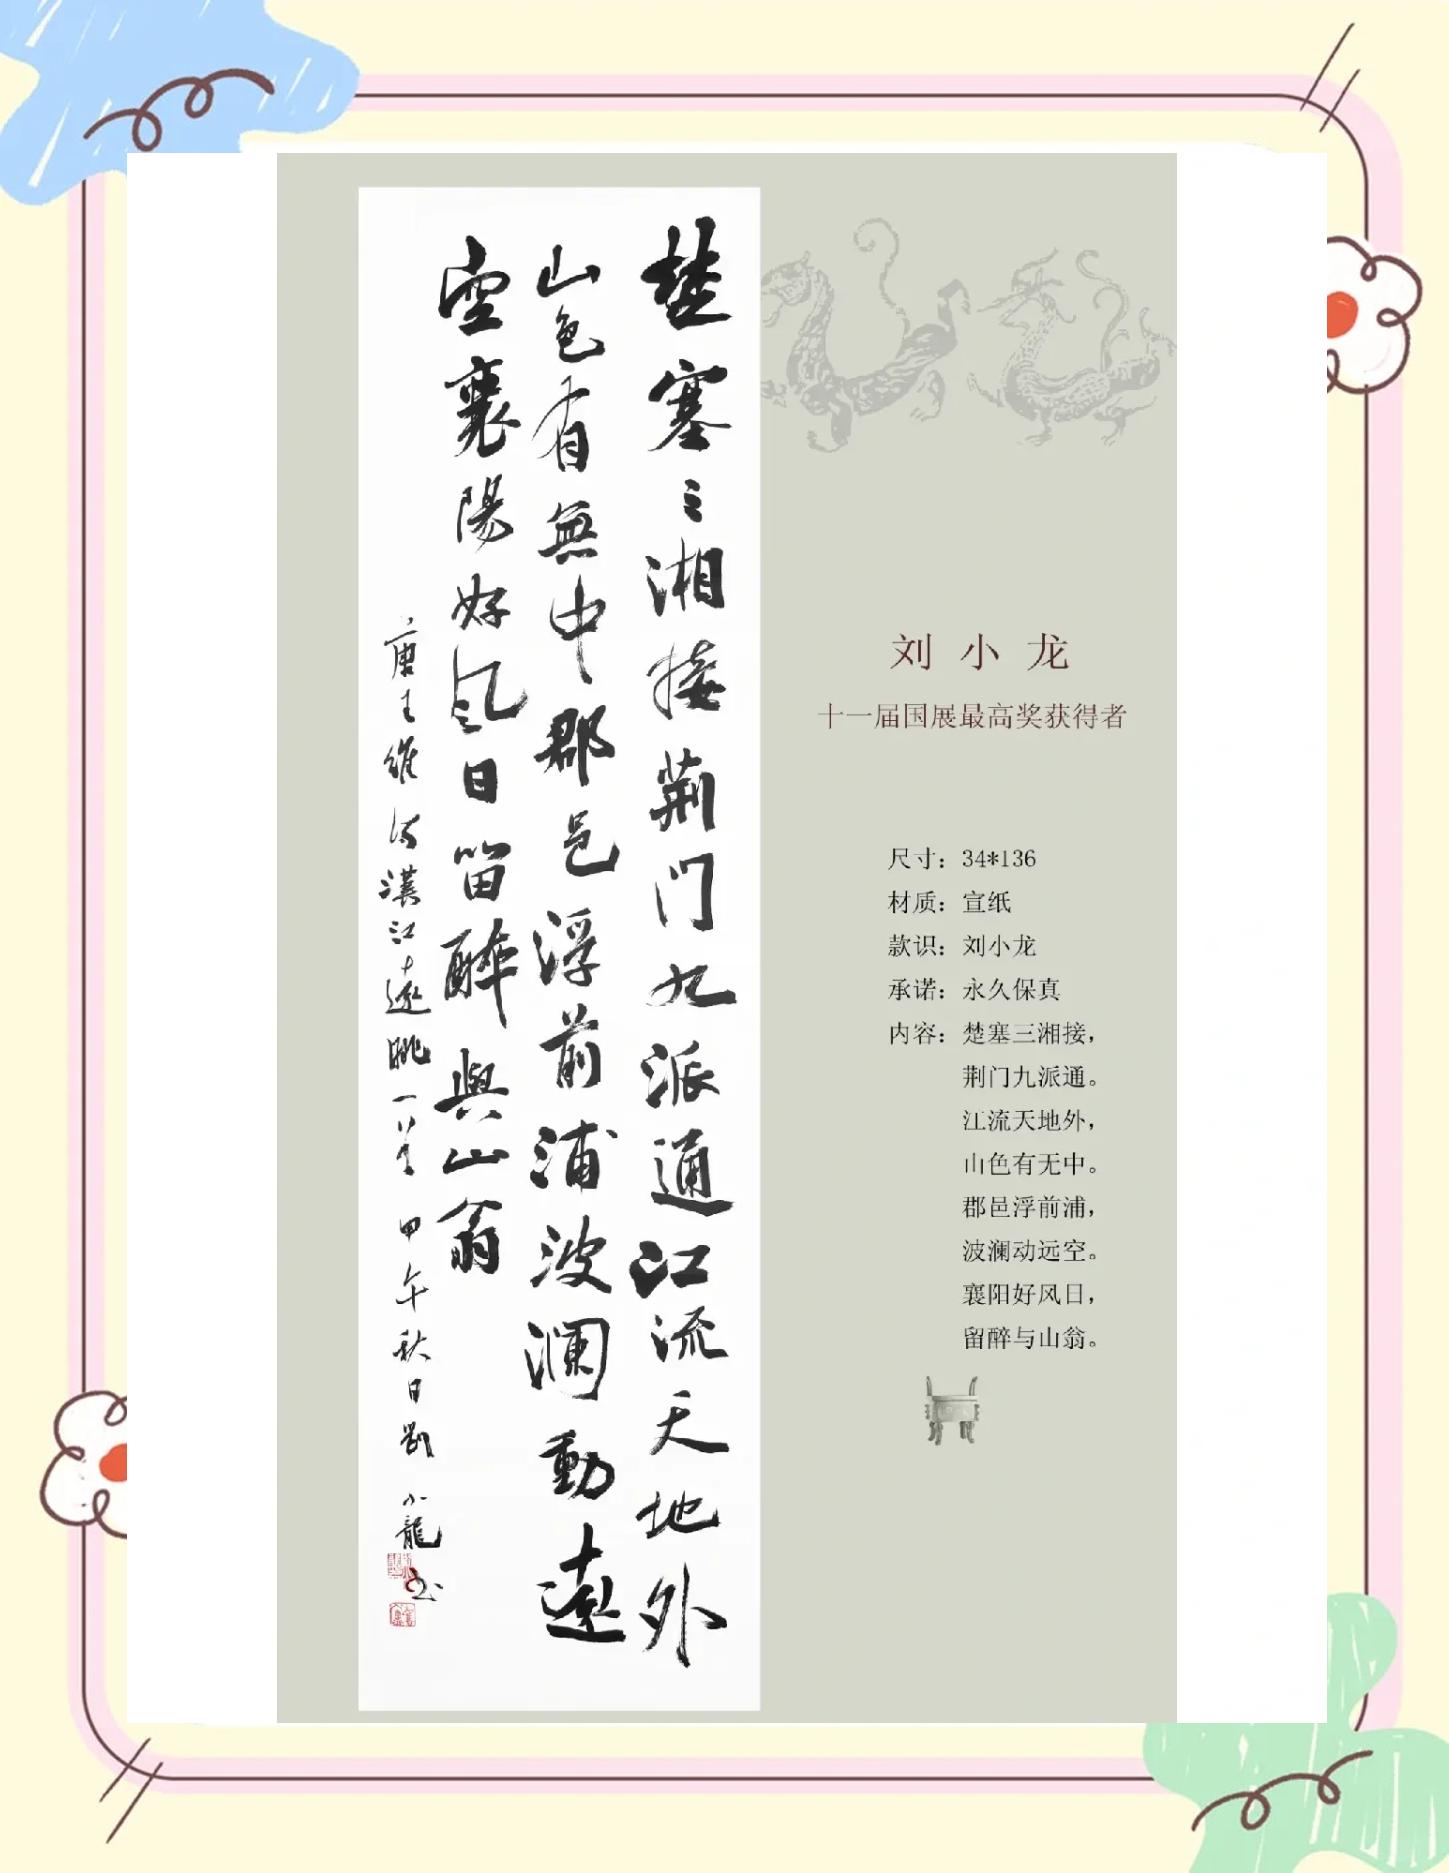 楚塞三湘接荆门九派通江流天地外
山色有無中郡邑浮前浦波瀾動遠
空襄陽好風日留醉與山翁
唐王維詩漢江遠眺一首甲午秋日劉小龍书
刘小龙
十一届国展最高奖获得者
尺寸：34*136
材质：宣纸
款识：刘小龙
承诺：永久保真
内容：楚塞三湘接，
荆门九派通。
江流天地外，
山色有无中。
郡邑浮前浦，
波澜动远空。
襄阳好风日，
留醉与山翁。